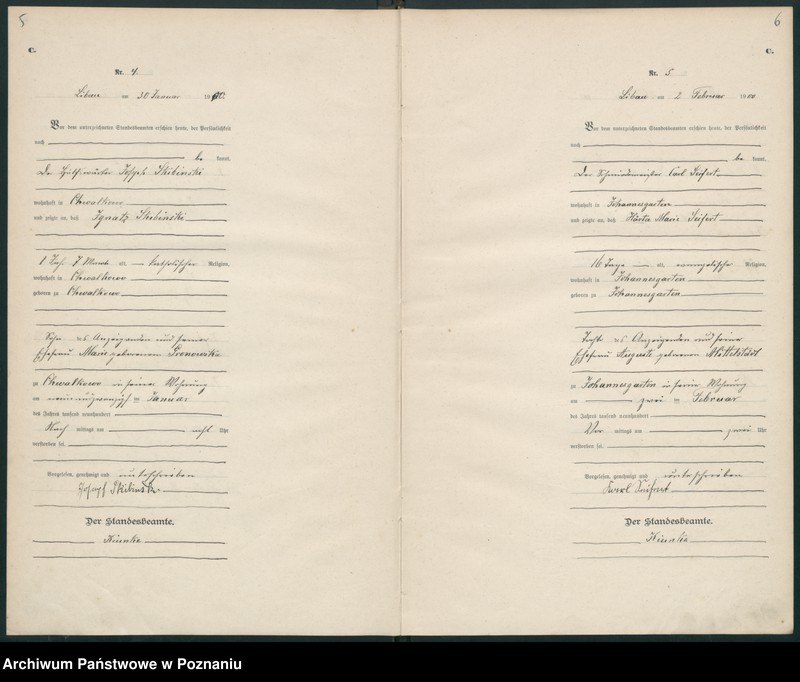 5
C.
Nr. 4
Libau am 30 Januar 1900.
Vor dem unterzeichneten Standesbeamten erschien heute, der Persönlichkeit
nach
be kannt,
De Joseph Skibinski
wohnhaft in Chwalkowo
und zeigte an, daß Ignatz Skibinski
1 Jah 7 Monate alt, katholischer Religion,
wohnhaft in Chwalkowo
geboren zu Chwalkowo
Sohn des Anzeigenden und seiner
Ehefrau Marie geborenen
zu Chwalkowo in seiner Wohnung
am neunundzwanzigsten Januar
des Jahres tausend neunhundert
Nach mittags um acht Uhr
verstorben sei.
Vorgelesen, genehmigt und unterschrieben
Josept Skibinski
Der Standesbeamte.
6
C.
Nr. 5
Libau am 2 Februar 1900
Vor dem unterzeichneten Standesbeamten erschien heute, der Persönlichkeit
nach
be kannt,
Der Schmiedemeister Carl Seifert
wohnhaft in Johannesgarten
und zeigte an, daß Marie Seifert
16 Tage alt, evangelischer Religion,
wohnhaft in Johannesgarten
geboren zu Johannesgarten
Tochter des Anzeigenden und seiner
Ehefrau Auguste geborenen Mittelstädt
zu Johannesgarten in seiner Wohnung
am zwei Februar
des Jahres tausend neunhundert
Vor mittags um zwei Uhr
verstorben sei.
Vorgelesen, genehmigt und unterschrieben
Karl Seifert
Der Standesbeamte.
Archiwum Państwowe w Poznaniu